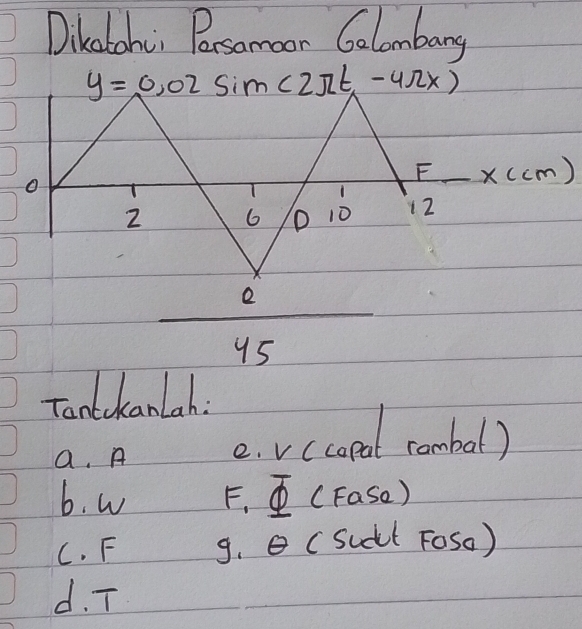 Dikatahui Parsamaan Gelombang
y = 0,02 Sim (2πt - 4πx)
0 2 6 D 10 F 12 x (cm)
e
45
Tantukanlah:
a. A e. v (capat rambat)
b. W F. Φ (Fase)
C. F g. θ (Sudut Fasa)
d. T